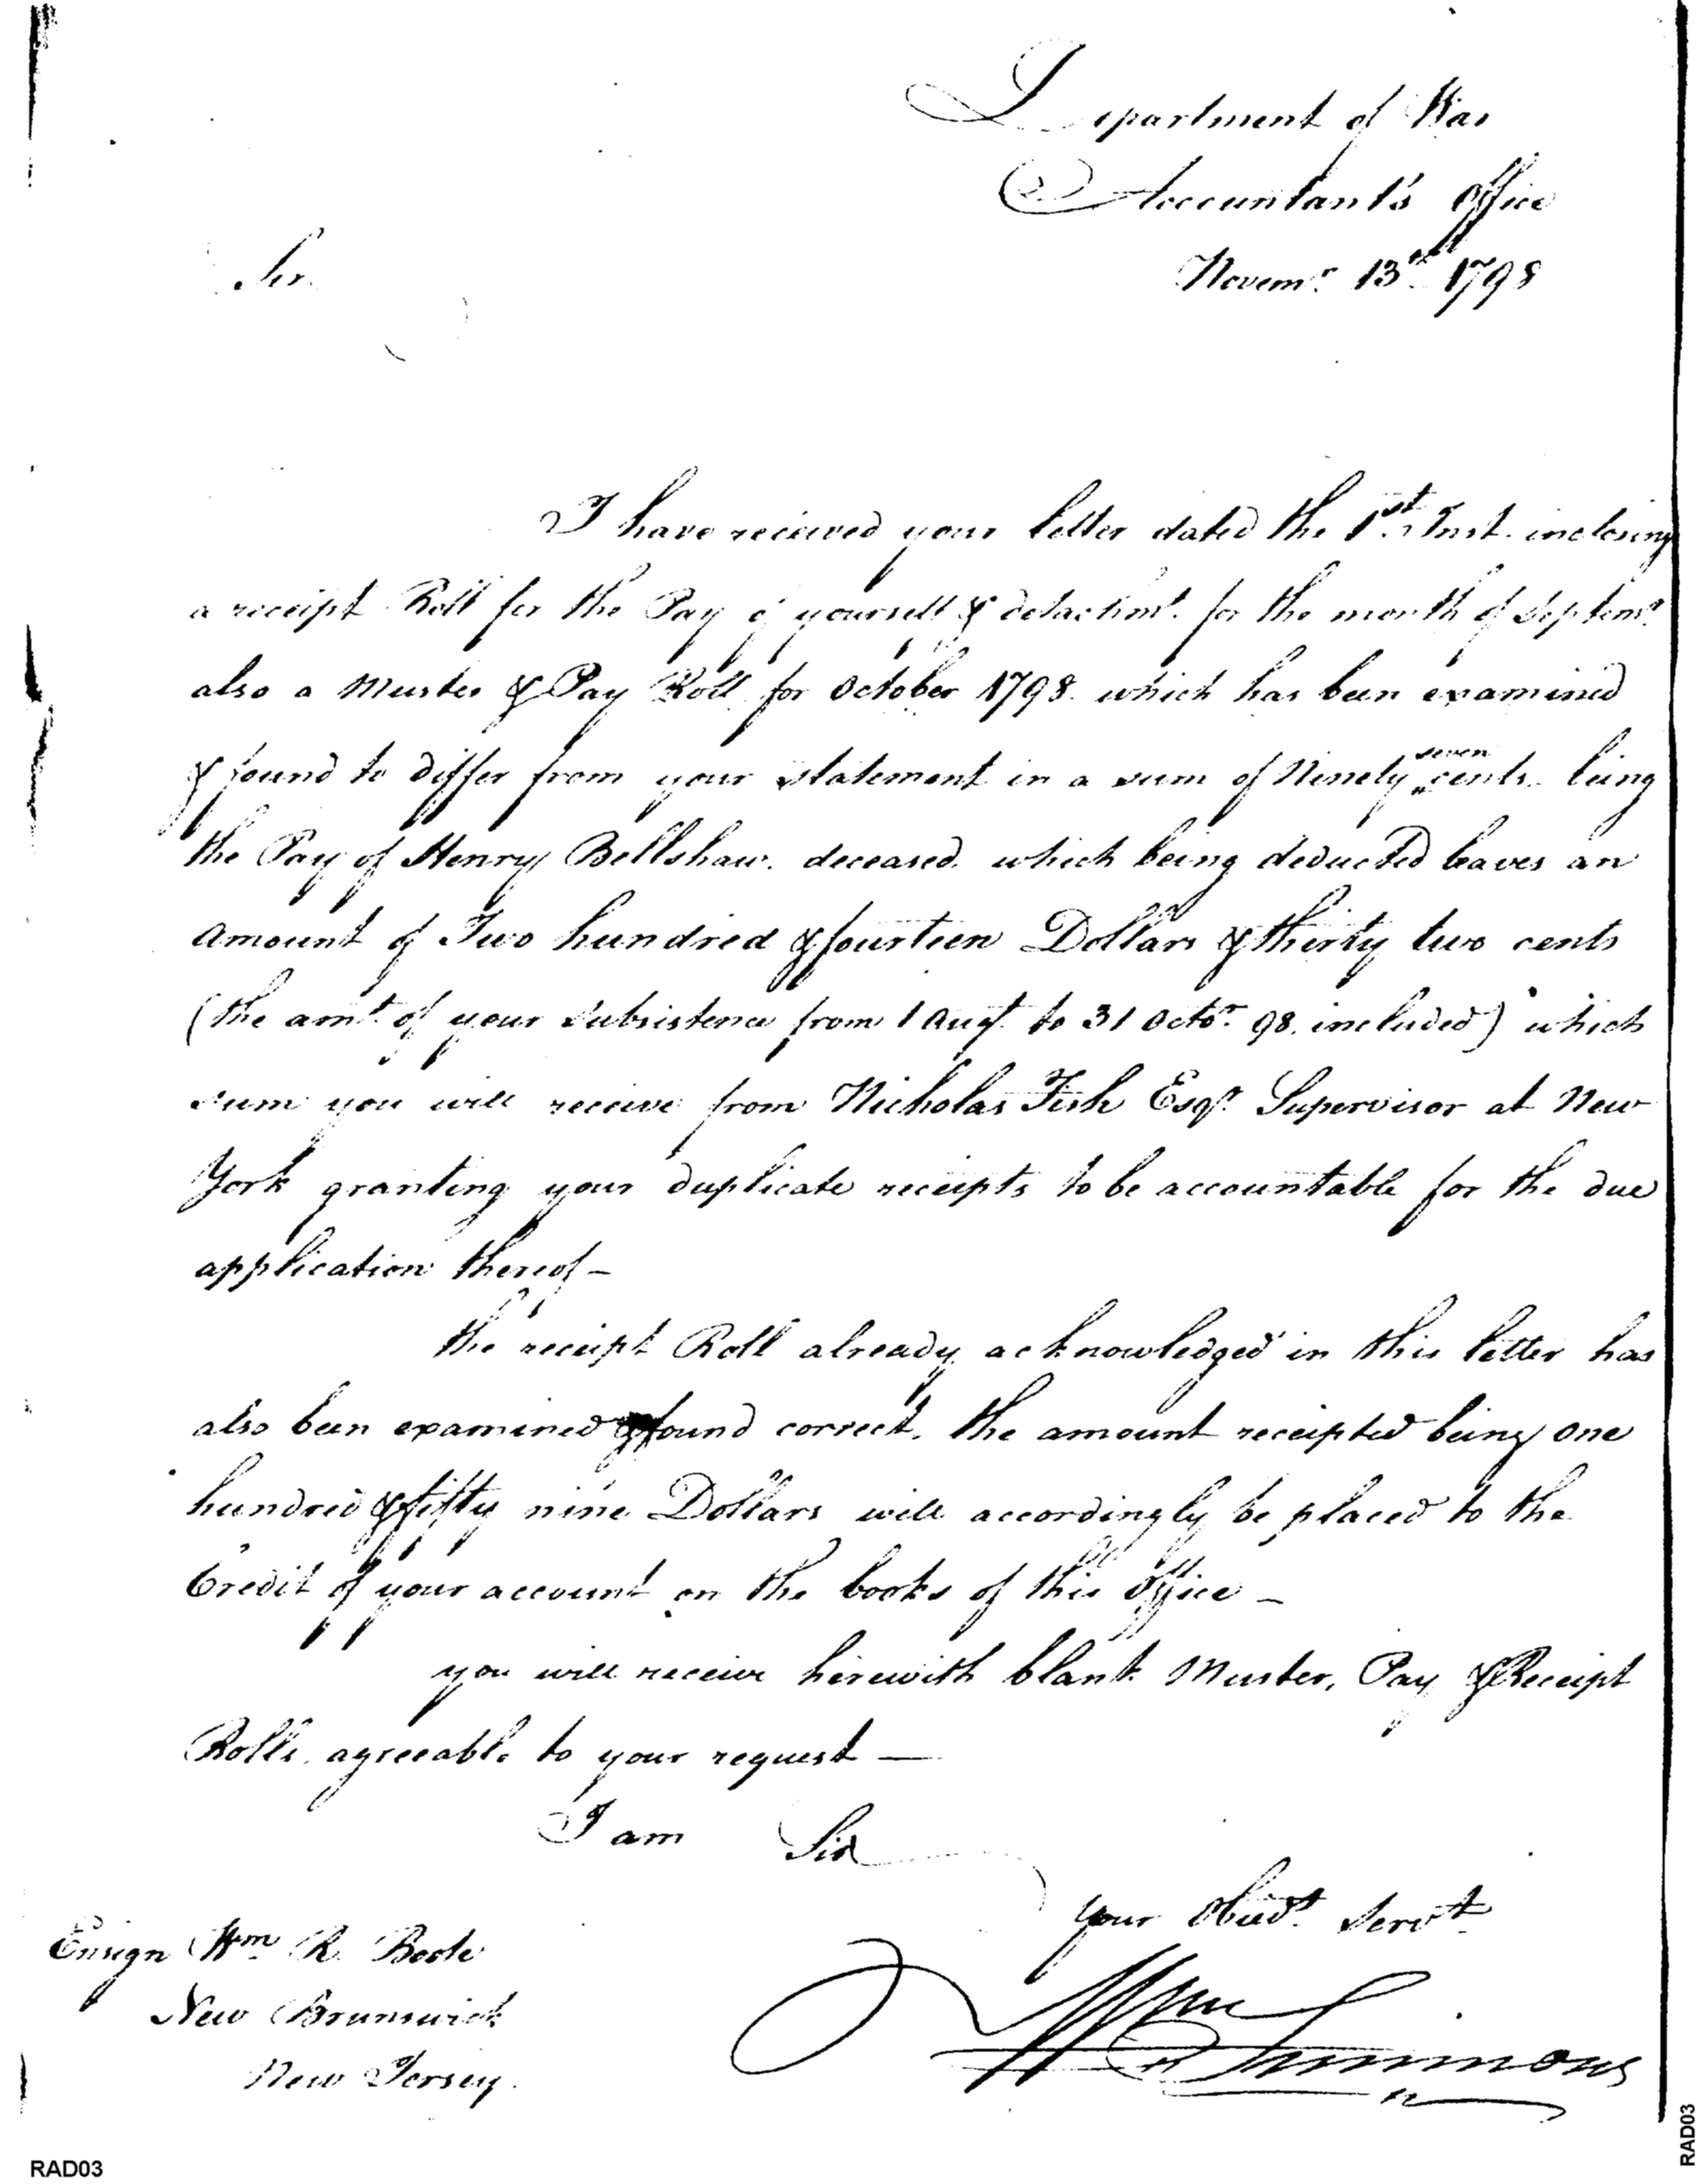 Department of War
Accountant's Office
Sir. Novemr. 13th. 1798
I have received your letter dated the 1st. Inst. inclosing
a receipt Roll for the Pay of yourself & detachmt. for the month of Septemr.
also a Muster & Pay Roll for October 1798. which has been examined
& found to differ from your statement in a sum of Ninety seven cents. being
the Pay of Henry Bellshaw. deceased. which being deducted leaves an
amount of Two hundred & fourteen Dollars & thirty two cents
(the amt. of your subsistence from 1 Augt. to 31 Octor. 98. included) which
sum you will receive from Nicholas Fish Esqr. Supervisor at New
York granting your duplicate receipts to be accountable for the due
application thereof —
the receipt Roll already acknowledged in this letter has
also been examined & found correct. the amount receipted being one
hundred & fifty nine Dollars will accordingly be placed to the
Credit of your account on the books of this Office —
you will receive herewith blank Muster, Pay & Receipt
Rolls. agreeable to your request —
I am Sir
your Obedt. Servt.
Ensign Wm. R. Boote
New Brunswick
New Jersey.
Wm Simmons
RAD03
RAD03